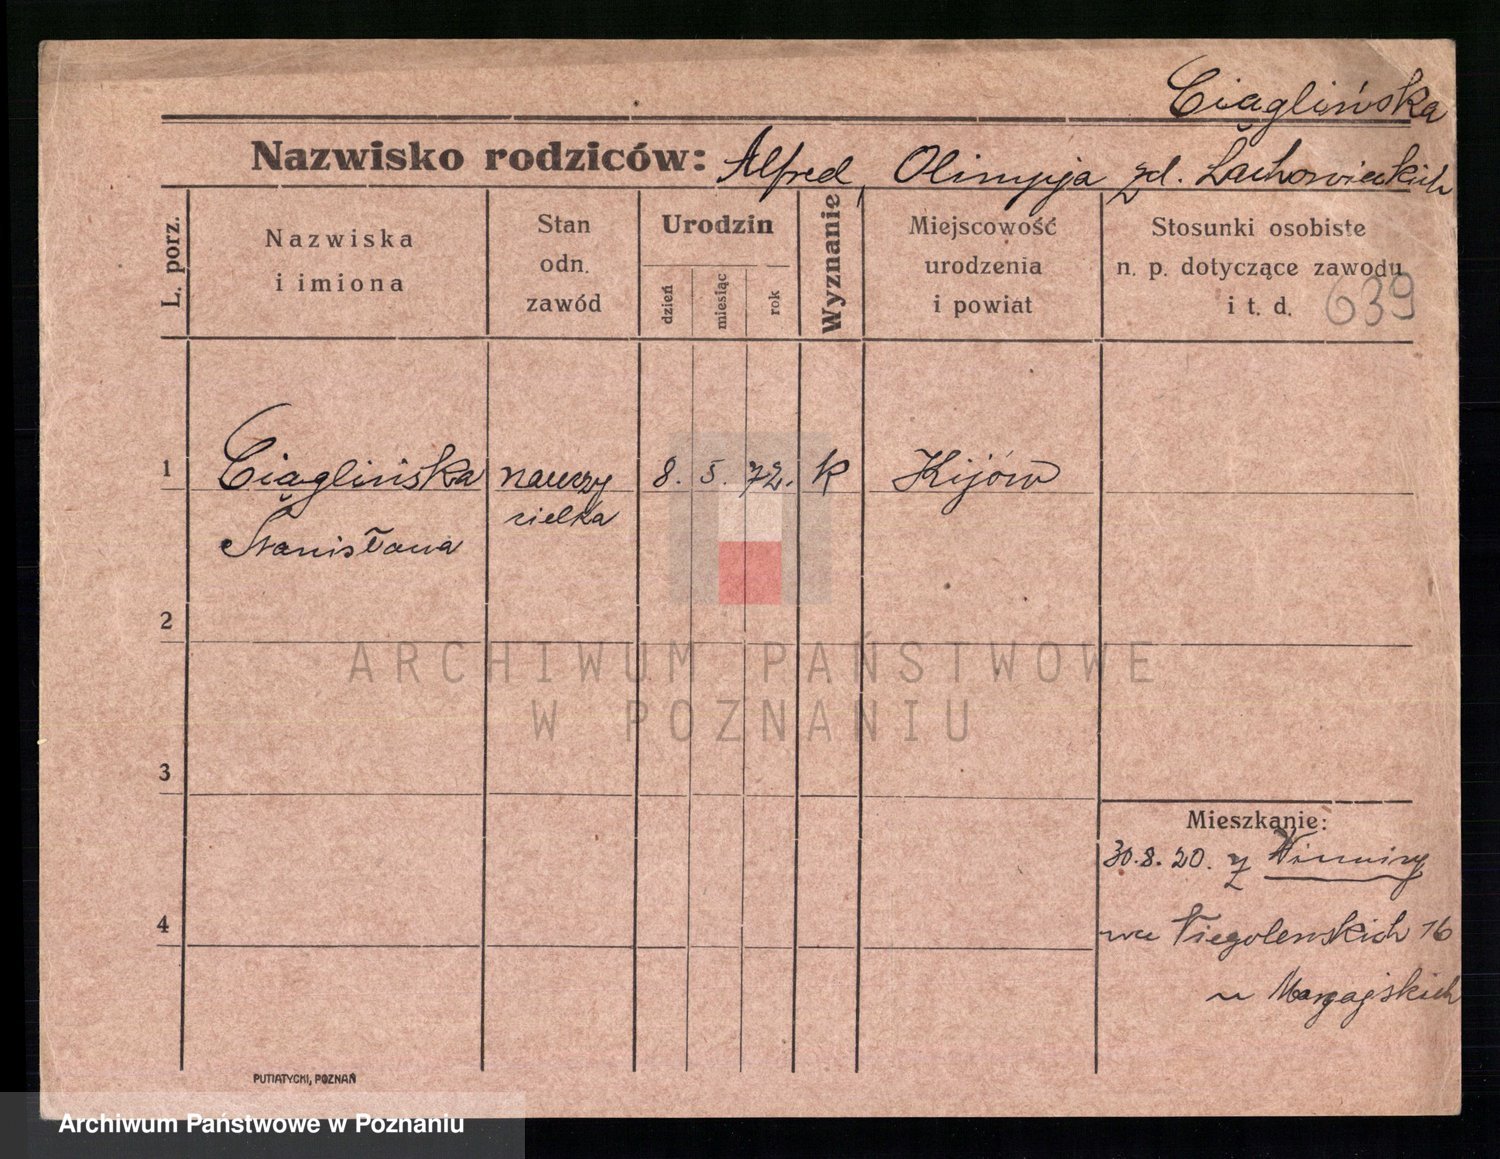 Ciąglińska
Nazwisko rodziców: Alfred, Olimpja zd. Lachowieckich
L. porz.
Nazwiska
i imiona
Stan
odn.
zawód
Urodzin
dzień
miesiąc
rok
Wyznanie
Miejscowość
urodzenia
i powiat
Stosunki osobiste
n. p. dotyczące zawodu
i t. d.
639
1
Ciąglińska
Stanisława
nauczy
cielka
8. 5. 72.
k
Kijów
2
ARCHIWUM PAŃSTWOWE
W POZNANIU
3
Mieszkanie:
30.8.20. z Winniny
4
16
u
PUTIATYCKI, POZNAŃ
Archiwum Państwowe w Poznaniu